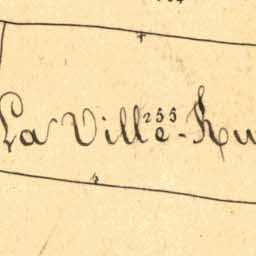 La Ville-Hu
255